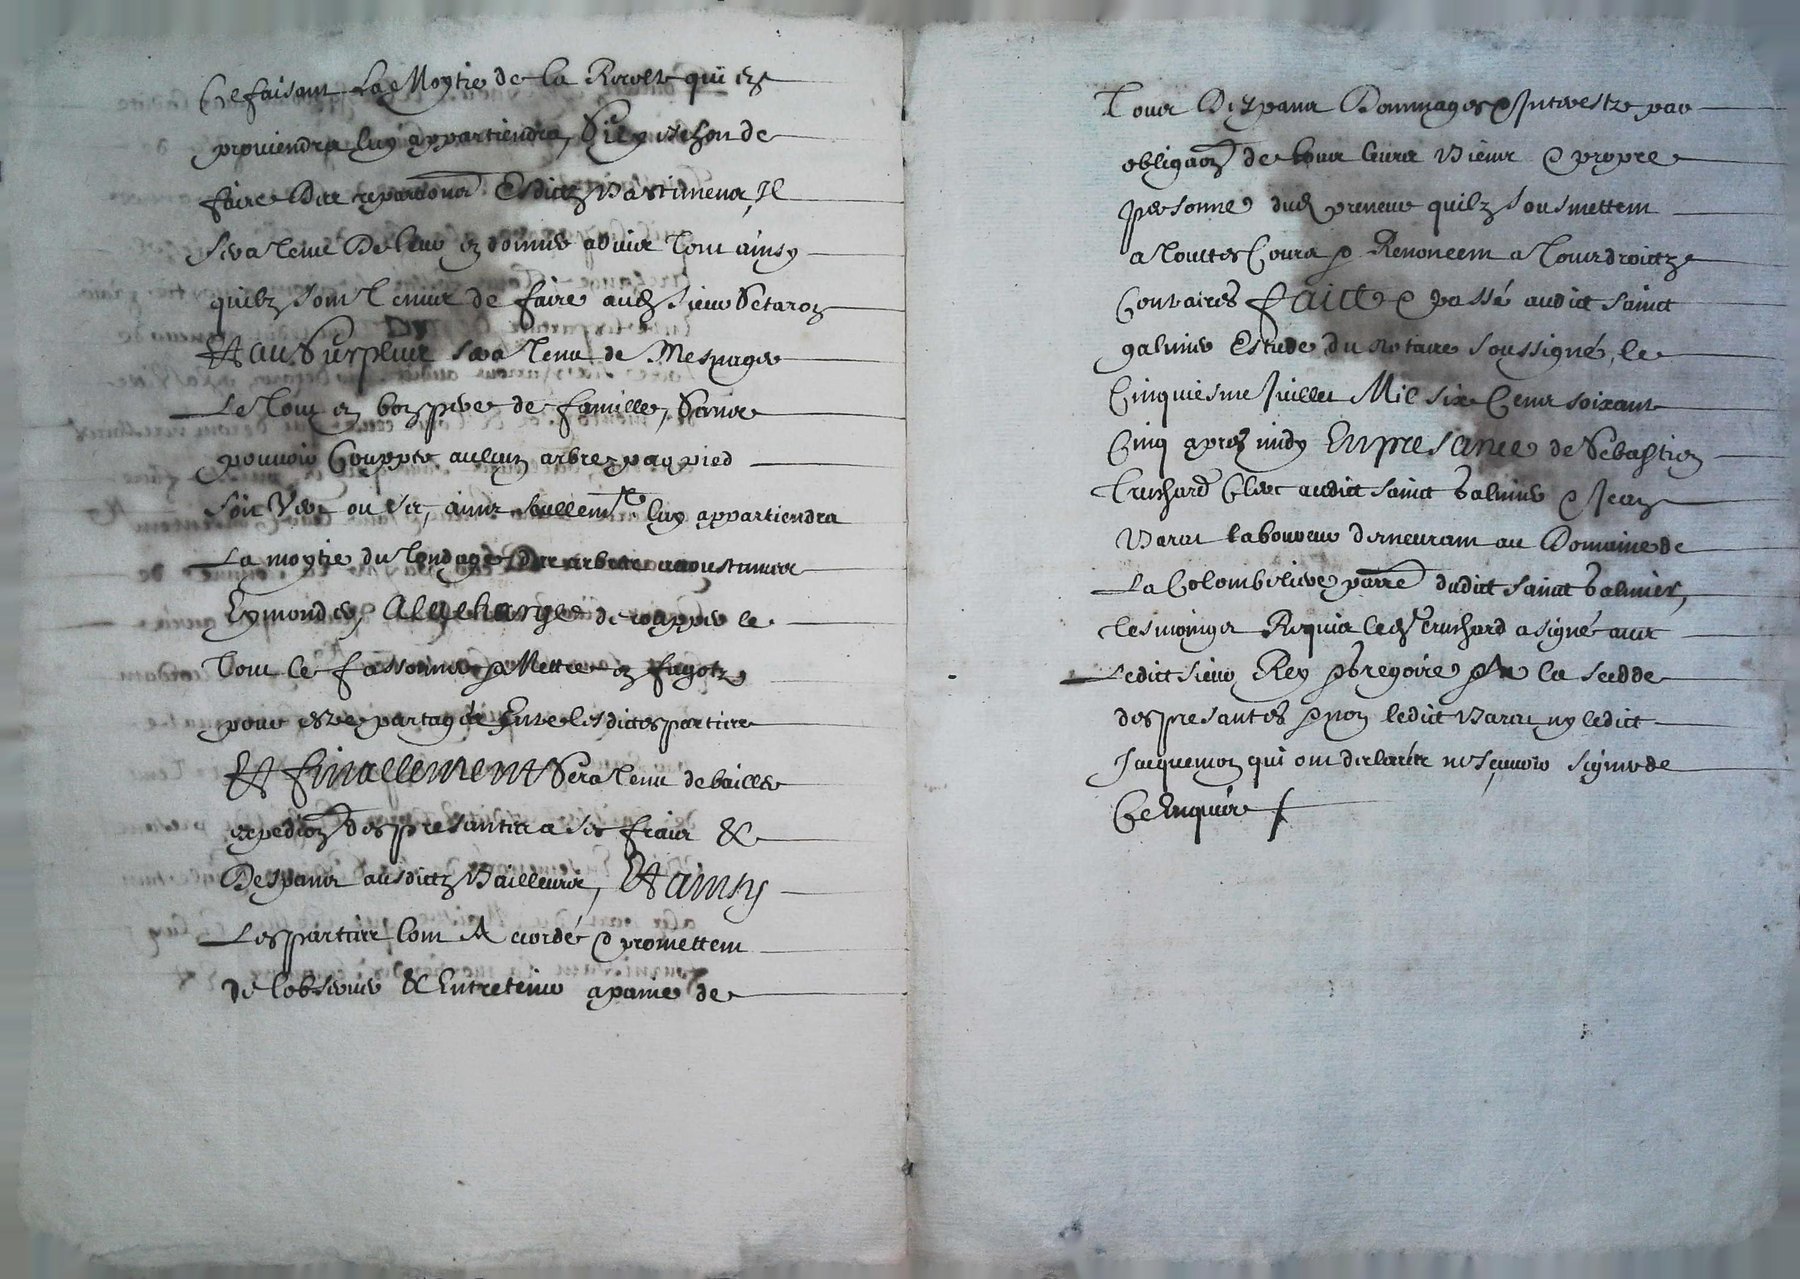 Ce faisant La Moytie de la Recolte qui en
proviendra luy appartiendra, Sil y besoin de
faire des reparaõns Esdictz Bastimens, Il
sera tenu De leur en donner advis tout ainsy
quilz sont tenus de faire aud sieur
Et au Surplus sera tenu de Mesnager
Le tout en bon pere de famille, Sans
pouvoir Couppe aulcun arbre par pied
soit Verd ou sec, ains seullemt luy appartiendra
La moytie du tondage des arbres accoustumes
Eymonder, A la charge de coupper le
tout le fassonner & Mettre en fagotz
pour estre partages Entre lesdictes parties
Et finallement Sera tenu de bailler
expedion des presantes a ses frais &
Despans ausdictz Bailleurs, Et ainsy
Les parties lont Accordé & promettent
de lobserver & Entretenir a paine de
tous Despans Dommages & Interestz par
obligaon de tous leurs biens & propre
personne dud preneur quilz sousmettent
a touttes Cours & Renoncent a tous droictz
Contraires faict & passé audict sainct
galmier Estude du Notaire soussigné, le
Cinquiesme Juillet Mil six Cens soixante
Cinq apres midy En presance de Sebastien
Trunchard Clerc audict sainct Galmier & Jean
Barou laboureur demeurant au Domaine de
La Colombiliere parre dudict sainct Galmier,
tesmoings Requis led Trunchard a signé avec
Ledict sieur Rey & Gregoire & A la scedde
des presantes & non ledict Barou ny ledict
Jacquemon qui ont declarér ne sçavoir signer de
Ce Enquis